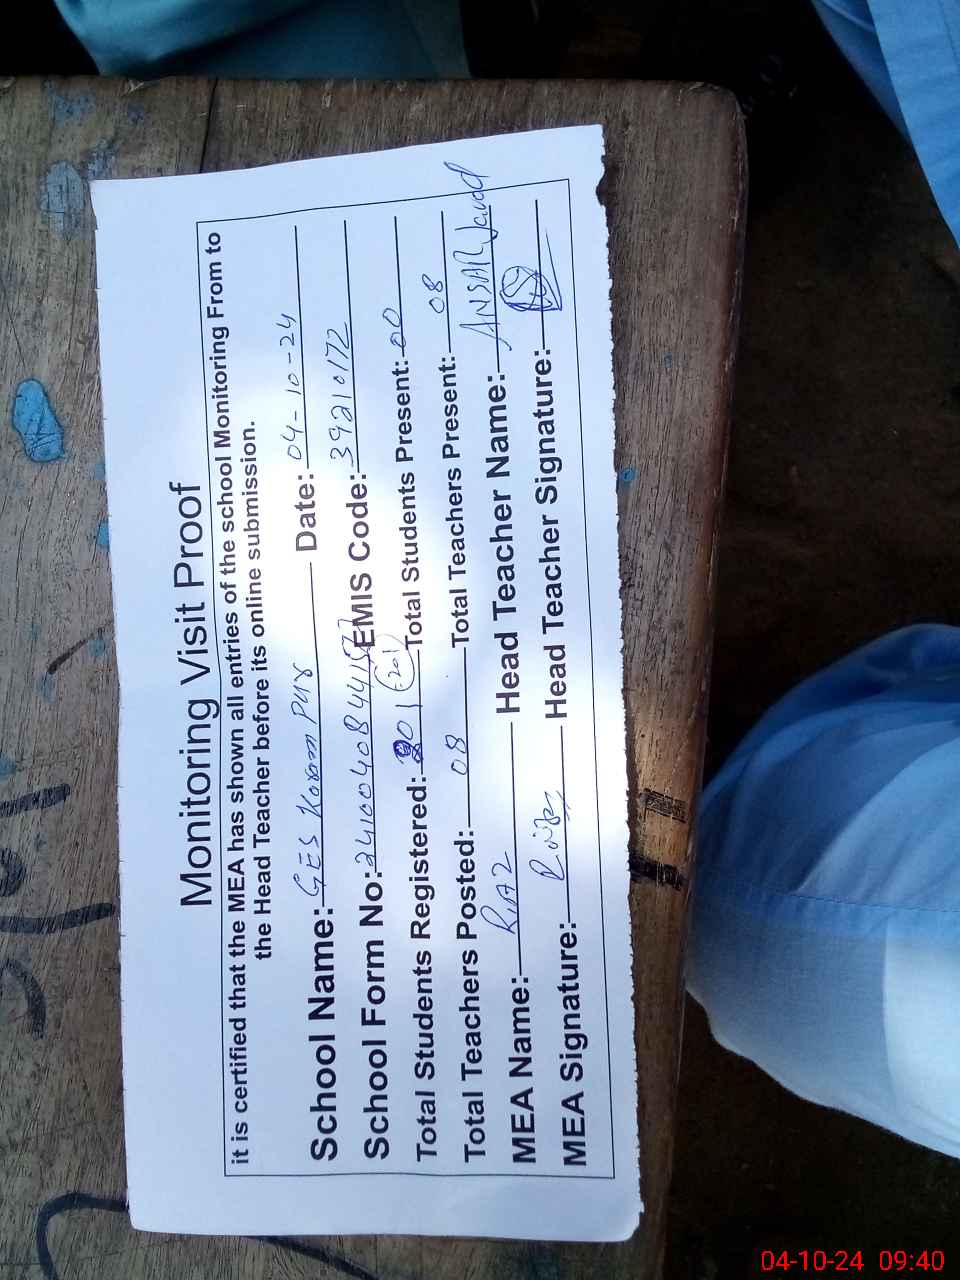 Monitoring Visit Proof
it is certified that the MEA has shown all entries of the school Monitoring From to
the Head Teacher before its online submission.
School Name: GES Karam Pur Date: 04-10-24
School Form No: EMIS Code: 39210172
Total Students Registered: 201 (201) Total Students Present: 00
Total Teachers Posted: 08 Total Teachers Present: 08
MEA Name: RIAZ Head Teacher Name: ANSAR Javed
MEA Signature: Head Teacher Signature:
04-10-24 09:40